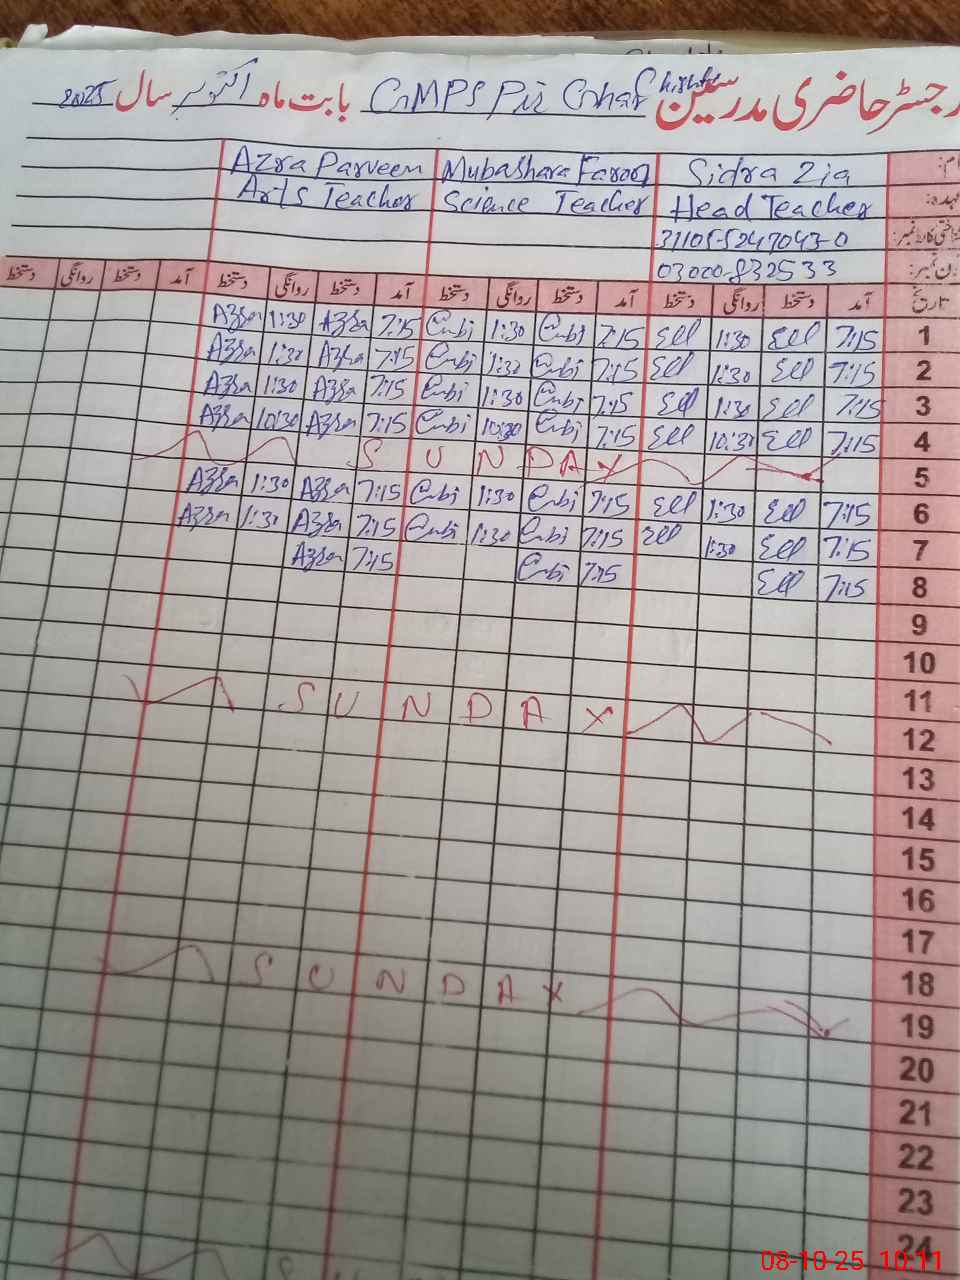 رجسٹر حاضری مدرسین GMPS Pir Gohar Chishti بابت ماہ اکتوبر سال 2025
Sidra Zia Mubashara Farooq Azra Parveen
Head Teacher Science Teacher Arts Teacher
31105-5247043-0
03000-832533
تاریخ آمد دستخط روانگی دستخط آمد دستخط روانگی دستخط آمد دستخط روانگی دستخط آمد دستخط روانگی دستخط
1 7:15 1:30 7:15 1:30 7:15 Azra 1:30 Azra
2 7:15 1:30 7:15 1:30 7:15 Azra 1:30 Azra
3 7:15 1:30 7:15 1:30 7:15 Azra 1:30 Azra
4 7:15 10:30 7:15 10:30 7:15 Azra 10:30 Azra
5 SUNDAY
6 7:15 1:30 7:15 1:30 7:15 Azra 1:30 Azra
7 7:15 1:30 7:15 1:30 7:15 Azra 1:30 Azra
8 7:15 7:15 7:15 Azra
9
10
11
12 SUNDAY
13
14
15
16
17
18
19 SUNDAY
20
21
22
23
24
08-10-25 10:11